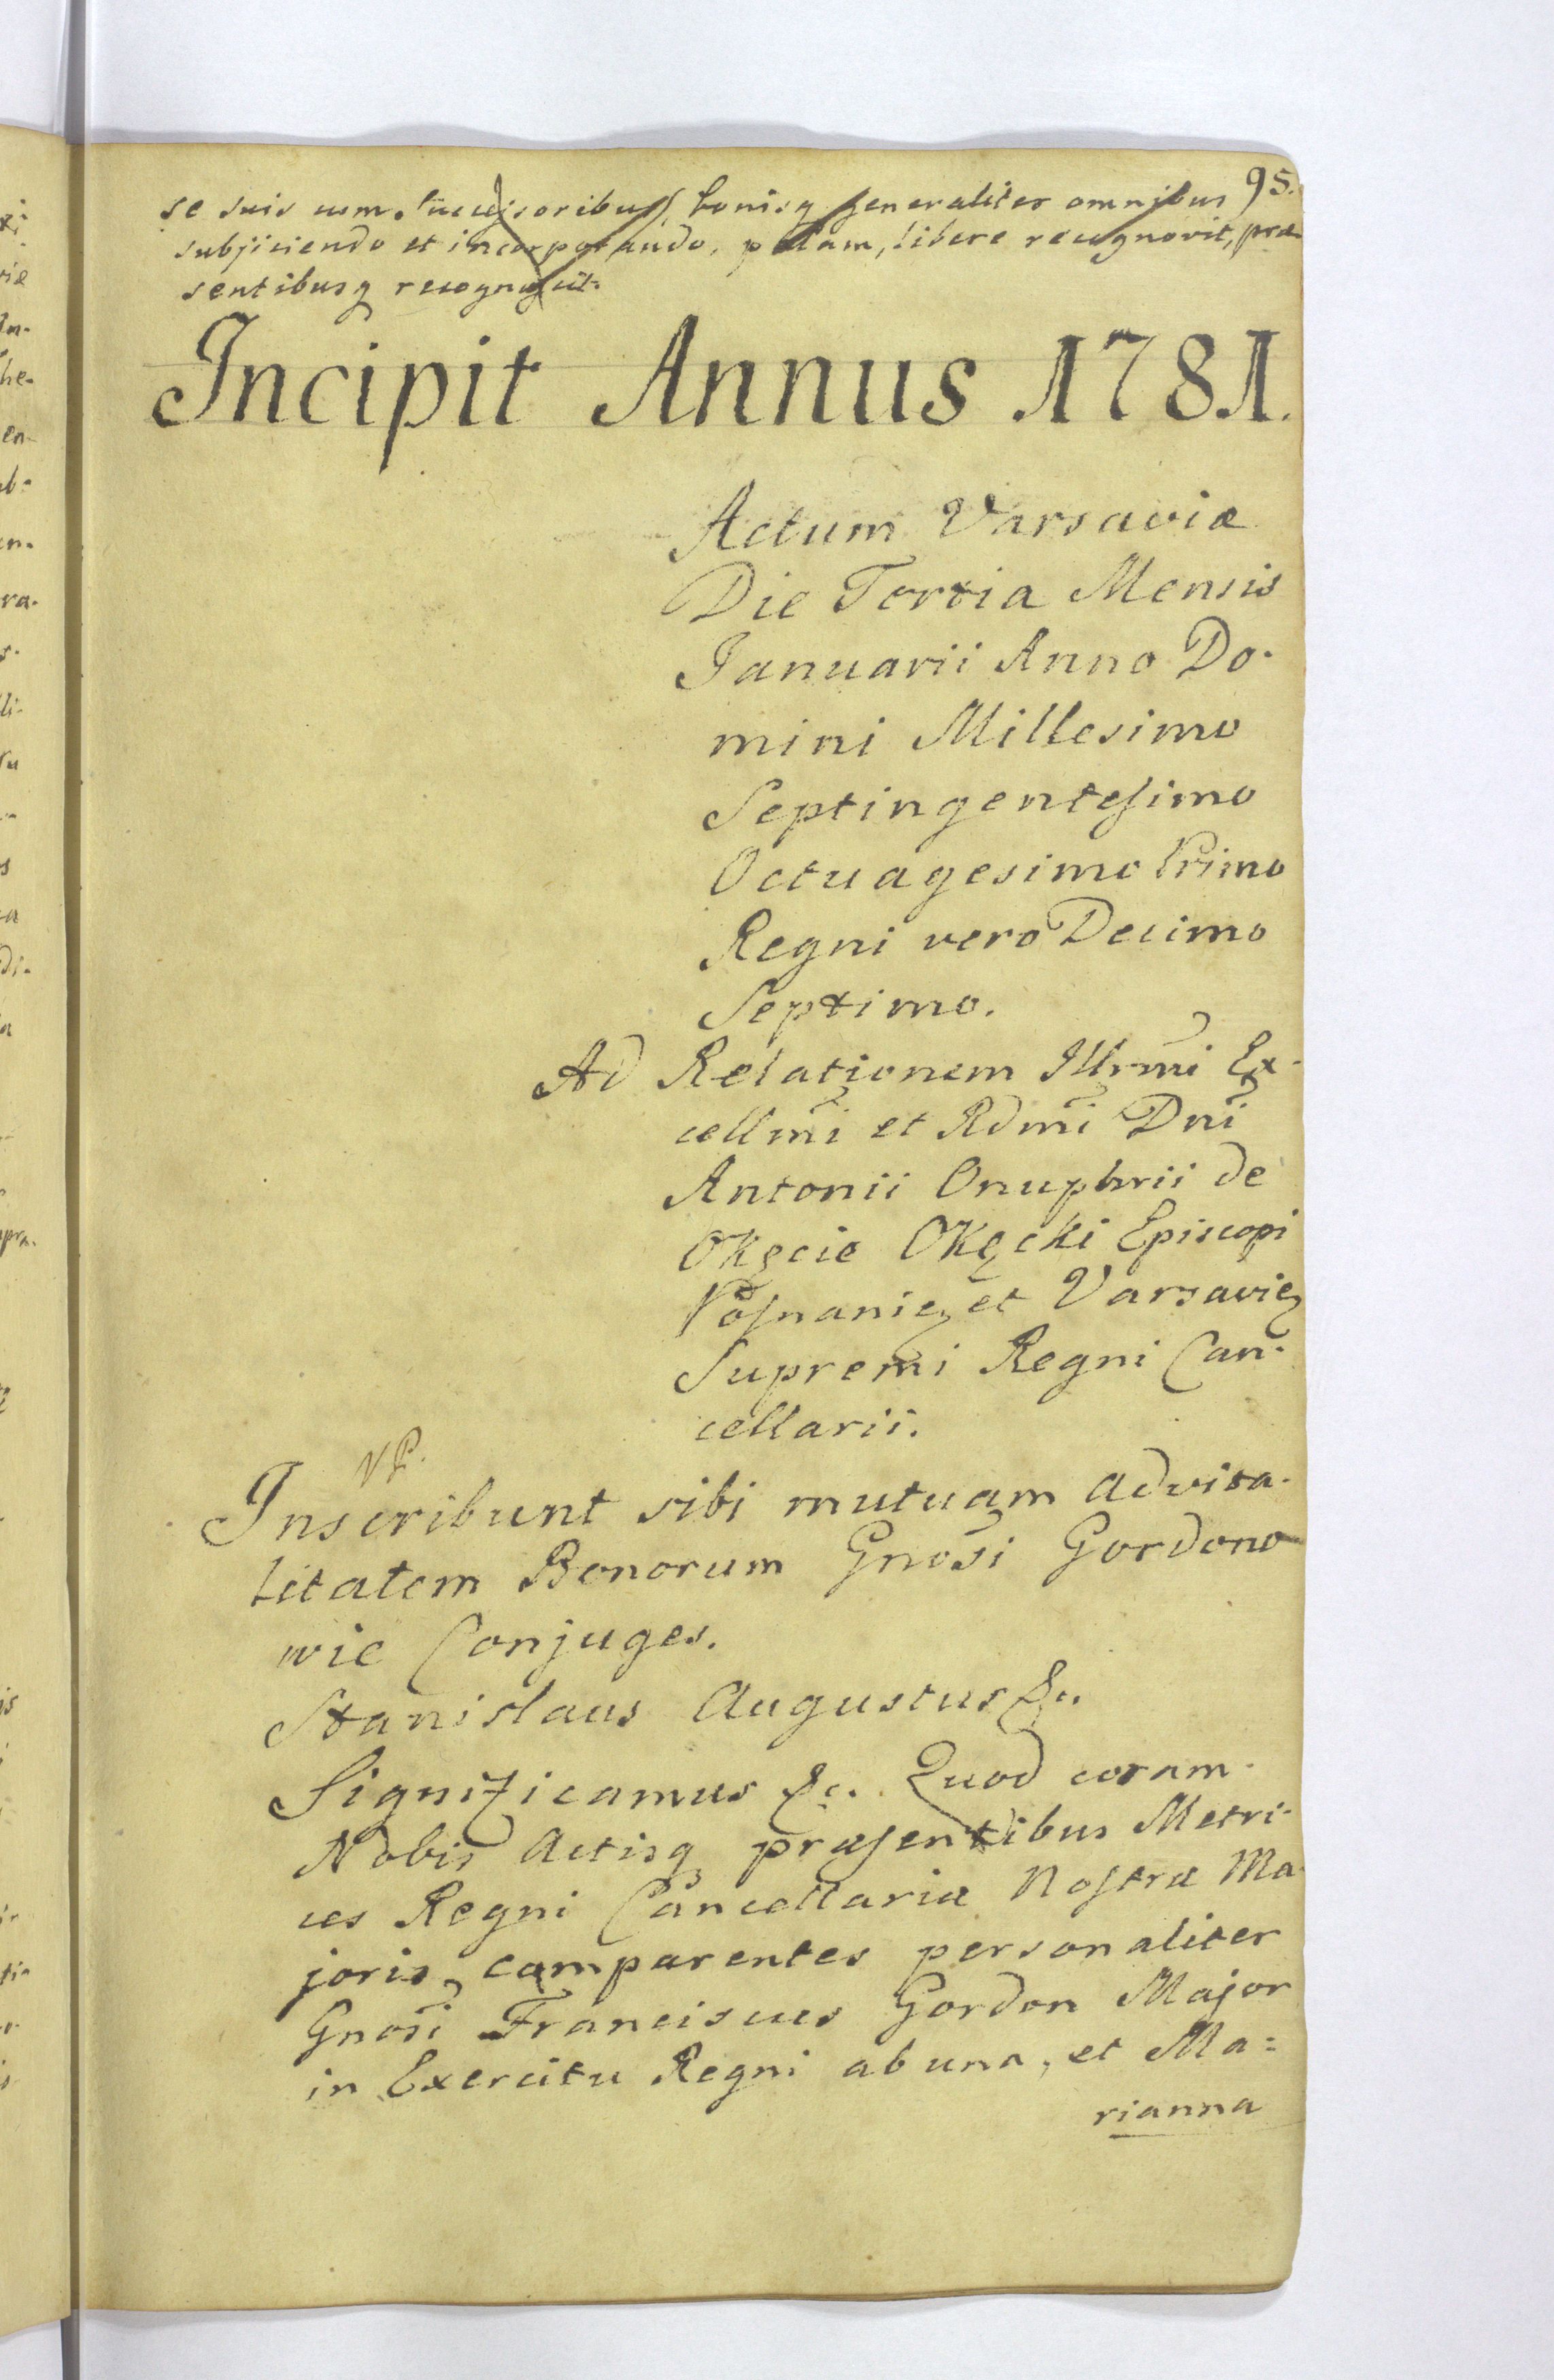 95.
se suis cum successoribus, bonisq generaliter omnibus
subjiciendo et incorporando, palam, libere recognovit, præ-
sentibusq recognoscit.
Incipit Annus 1781.
Actum Varsaviæ
Die Tertia Mensis
Januarii Anno Do-
mini Millesimo
Septingentesimo
Octuagesimo Primo
Regni vero Decimo
Septimo.
Ad Relationem Illrmi Ex-
cellmi et Rdmi Dni
Antonii Onuphrii de
Okęcie Okęcki Episcopi
Posnanię et Varsavię
Supremi Regni Can-
cellarii.
NP.
Inscribunt sibi mutuam advita-
litatem Bonorum Gnosi Gordono
wie Conjuges.
Stanislaus Augustus &c.
Significamus &c. Quod coram
Nobis Actisq præsentibus Metri-
ces Regni Cancellariæ Nostræ Ma-
joris, comparentes personaliter
Gnosi Franciscus Gordon Major
in Exercitu Regni ab una, et Ma=
rianna